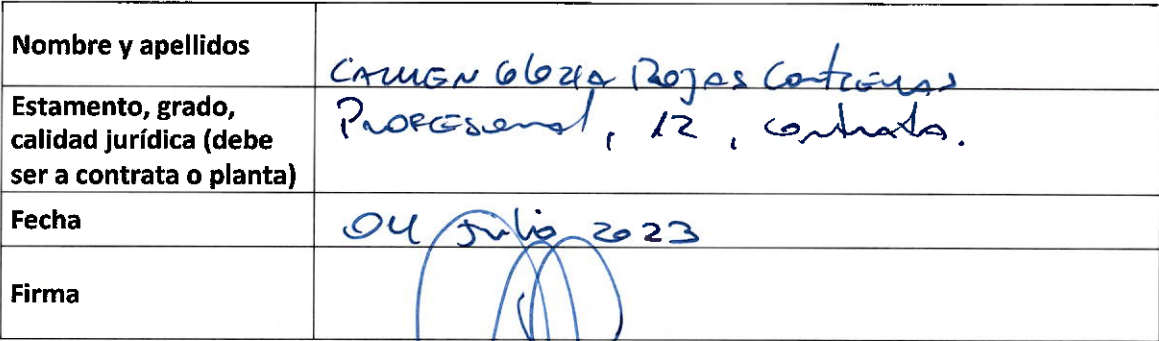 Nombre y apellidos
CARMEN GLORIA Rojas Contreras
Estamento, grado,
calidad jurídica (debe
ser a contrata o planta)
PROFESIONAL, 12, contrata.
Fecha
04 Julio 2023
Firma